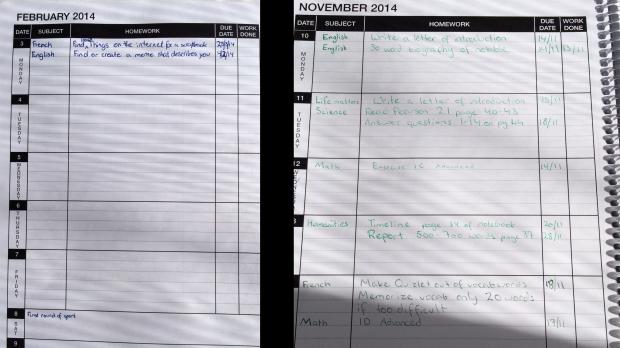 FEBRUARY 2014
DATE SUBJECT HOMEWORK DUE DATE WORK DONE
3 French Find things on the internet for a
English Find or create a meme that describes you
MONDAY
4
TUESDAY
5
WEDNESDAY
6
THURSDAY
7
FRIDAY
8 First round of sport
SAT
9
NOVEMBER 2014
DATE SUBJECT HOMEWORK DUE DATE WORK DONE
10 English Write a letter of introduction 14/11
English 50 word biography of notable
MONDAY
11 Life matters Write a letter of introduction
Science Read Pearson 2.1 page 40-43
Answer questions 1-14 on pg 44 18/11
TUESDAY
12 Math Exercise 1C Advanced 14/11
Humanities Timeline page 34 of notebook 20/11
Report 500-700 words page 37 28/11
French Make Quizlet out of vocab words 18/11
Memorize vocab only 20 words
if too difficult
Math 1D Advanced 17/11